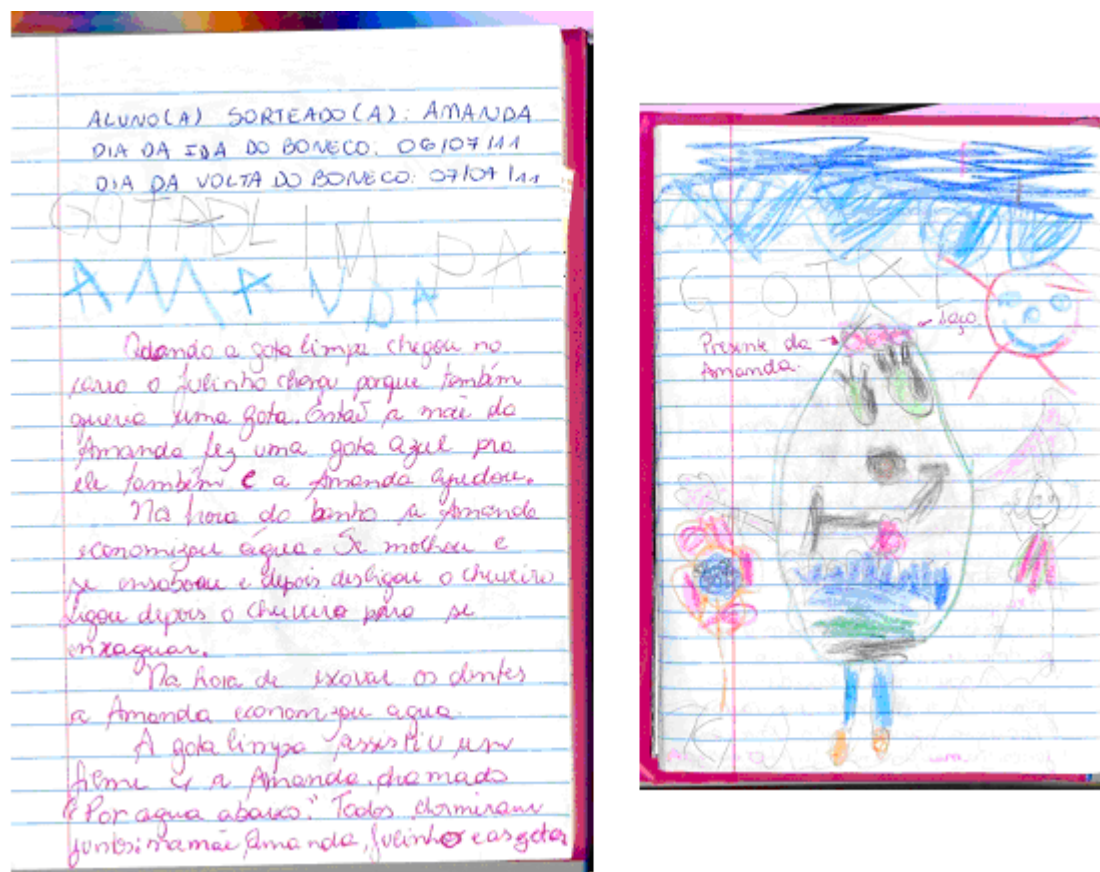 ALUNO(A) SORTEADO(A): AMANDA
DIA DA IDA DO BONECO: 06/07/11
DIA DA VOLTA DO BONECO: 07/07/11
GOTADLIMDPA
AMANDA
Quando a gota limpa chegou no
carro o Julinho chorou porque também
queria uma gota. Então a mãe da
Amanda fez uma gota azul pra
ele também e a Amanda ajudou.
Na hora do banho a Amanda
economizou água. Se molhou e
se ensaboou e depois desligou o chuveiro
Ligou depois o chuveiro para se
enxaguar.
Na hora de escovar os dentes
a Amanda economizou agua.
A gota limpa assistiu um
filme a Amanda chamado
"Por agua abaixo." Todos dormiram
juntos: mamãe, Amanda, Julinho e as gotas
GOTA
Presente da
Amanda.
laço